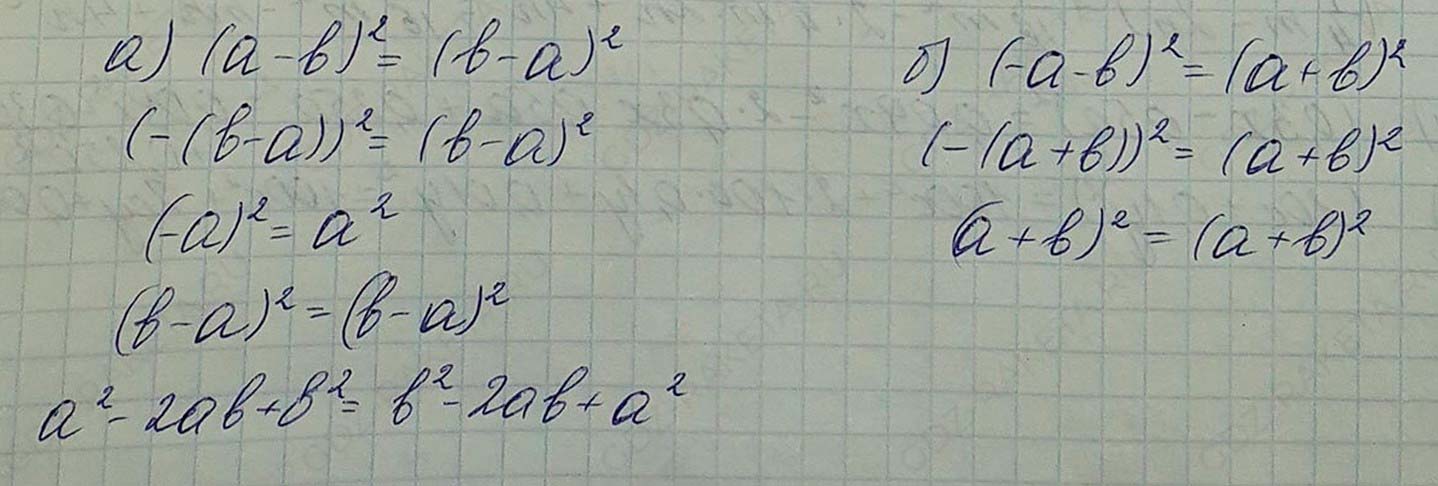 а) (a-b)² = (b-a)²
(-(b-a))² = (b-a)²
(-a)² = a²
(b-a)² = (b-a)²
a² - 2ab + b² = b² - 2ab + a²
б) (-a-b)² = (a+b)²
(-(a+b))² = (a+b)²
(a+b)² = (a+b)²